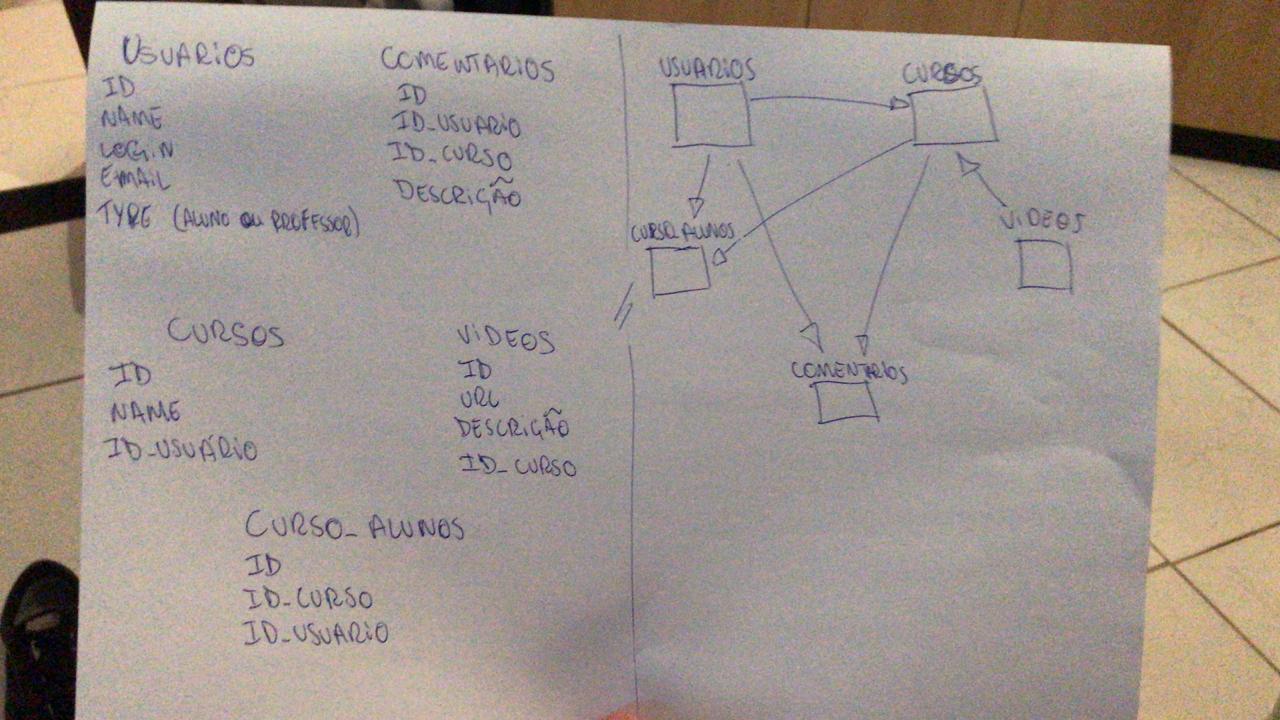 USUARIOS
ID
NAME
LOGIN
EMAIL
TYPE (ALUNO OU PROFESSOR)
COMENTARIOS
ID
ID_USUARIO
ID_CURSO
DESCRIÇÃO
CURSOS
ID
NAME
ID_USUÁRIO
VIDEOS
ID
URL
DESCRIÇÃO
ID_CURSO
CURSO_ALUNOS
ID
ID_CURSO
ID_USUARIO
USUARIOS
CURSOS
CURSO_ALUNOS
VIDEOS
COMENTARIOS